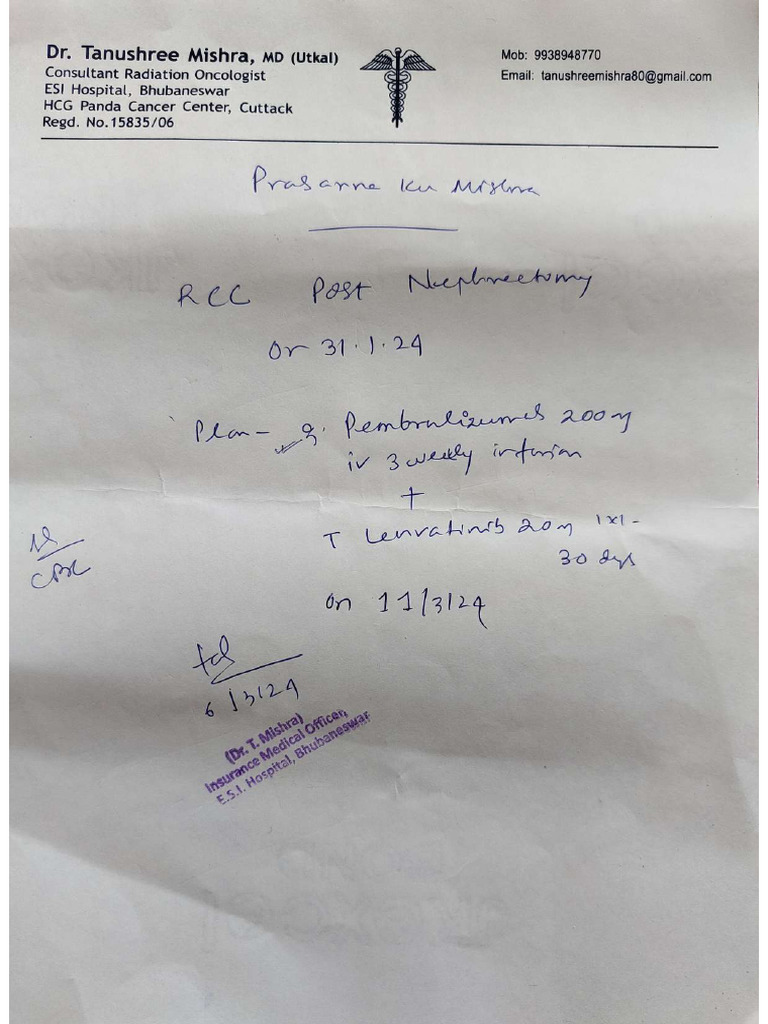 Dr. Tanushree Mishra, MD (Utkal)
Consultant Radiation Oncologist
ESI Hospital, Bhubaneswar
HCG Panda Cancer Center, Cuttack
Regd. No.15835/06
Mob: 9938948770
Email: tanushreemishra80@gmail.com
Prasanna Ku Mishra
RCC Post Nephrectomy
on 31.1.24
Plan - Pembralizumab 200mg
iv 3 weekly infusion
+
T Lenvatinib 20mg 1x1-
30 days
CBC
on 11/3/24
6/3/24
(Dr. T. Mishra)
Insurance Medical Officer,
E.S.I. Hospital, Bhubaneswar